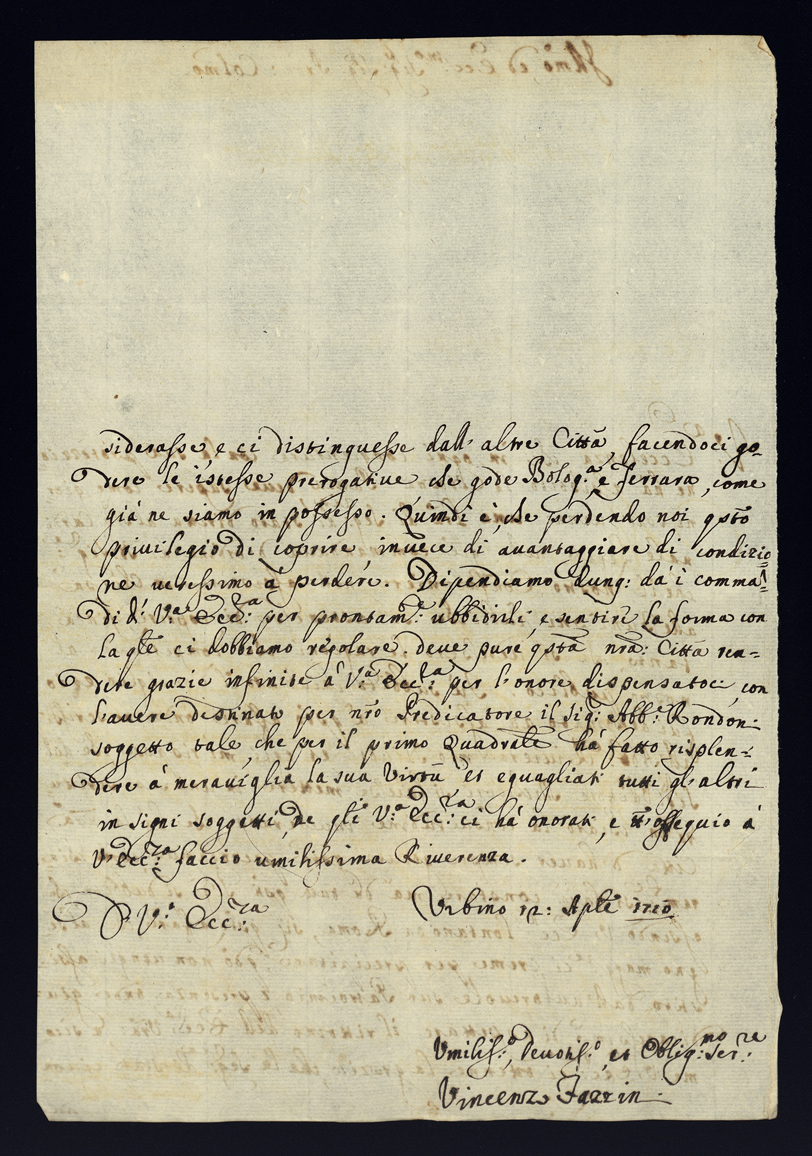 siderasse e ci distinguesse dall' altre Città, facendoci go=
dere le istesse prerogative che gode Bolog.a e Ferrara, come
già ne siamo in possesso. Quindi è, che perdendo noi qsto
privilegio di coprire invece di avantaggiare di condizio
ne veressimo à perdere. Dipendiamo dunq: dà i comma=
di d' V.a Ecc:za per prontam.te ubbidirli, e sentire la forma con
la qle ci dobbiamo regolare. deve pure qsta nra: Città ren=
dere grazie infinite à V.a Ecc:za per l'onore dispensatoci, con
l'avere destinato per nro Predicatore il sig.r Abb.e Rondon:
soggetto tale che per il primo Quadrale hà fatto risplen=
dere à meraviglia la sua Virtù et eguagliati tutti gl'altri
in signi soggetti de gli V.a Ecc:za ci hà onorati, e ossequio à
V.Ecc:za faccio umilissima Riverenza.
D V.a Ecc:za
Urbino 12: Aple 1710
Umilis.o, Devotis.o, et Oblig:mo Ser:re
Vincenzo